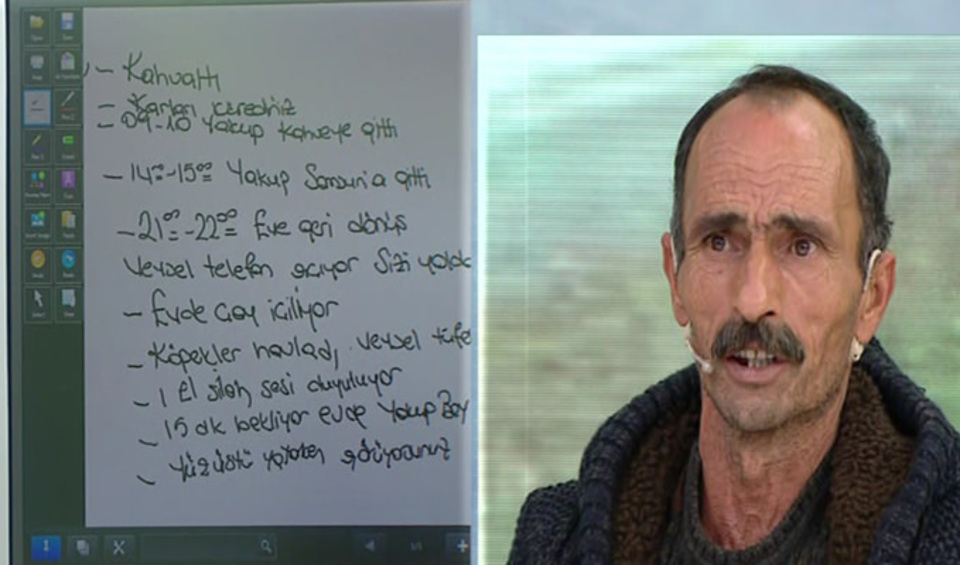 - Kahvaltı
- Karları kürediniz
- 09-10 Yakup kahveye gitti
- 14⁰⁰-15⁰⁰ Yakup Samsun'a gitti
- 21⁰⁰-22⁰⁰ Eve geri dönüş
Veysel telefon açıyor Sizi
- Evde çay içiliyor
- Köpekler havladı, Veysel
- 1 El silah sesi duyuluyor
- 15 dk bekliyor evde Yakup Bey
- Yüzüstü yatarken görüyorsunuz